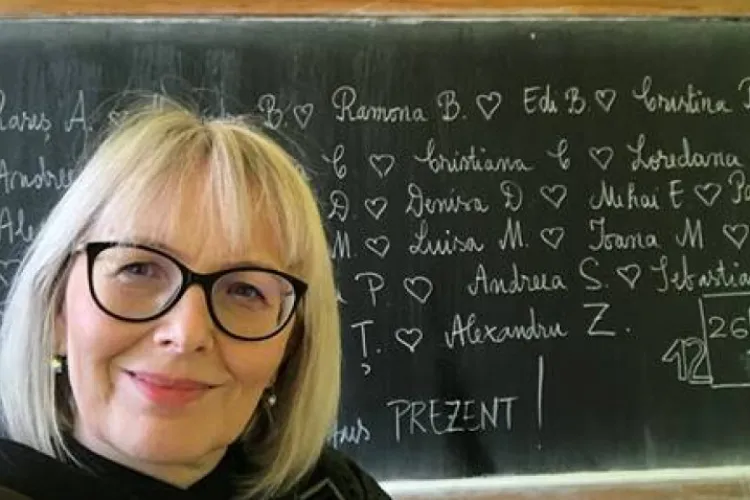 Rareș A. B. ♡ Ramona B. ♡ Edi B. ♡ Cristina
C ♡ Cristiana C ♡ Loredana
D. ♡ Denisa D ♡ Mihai E ♡
M. ♡ Luisa M. ♡ Ioana M ♡
P. ♡ Andreea S. ♡ Sebastia
Ț. ♡ Alexandru Z.
26
12
PREZENT!